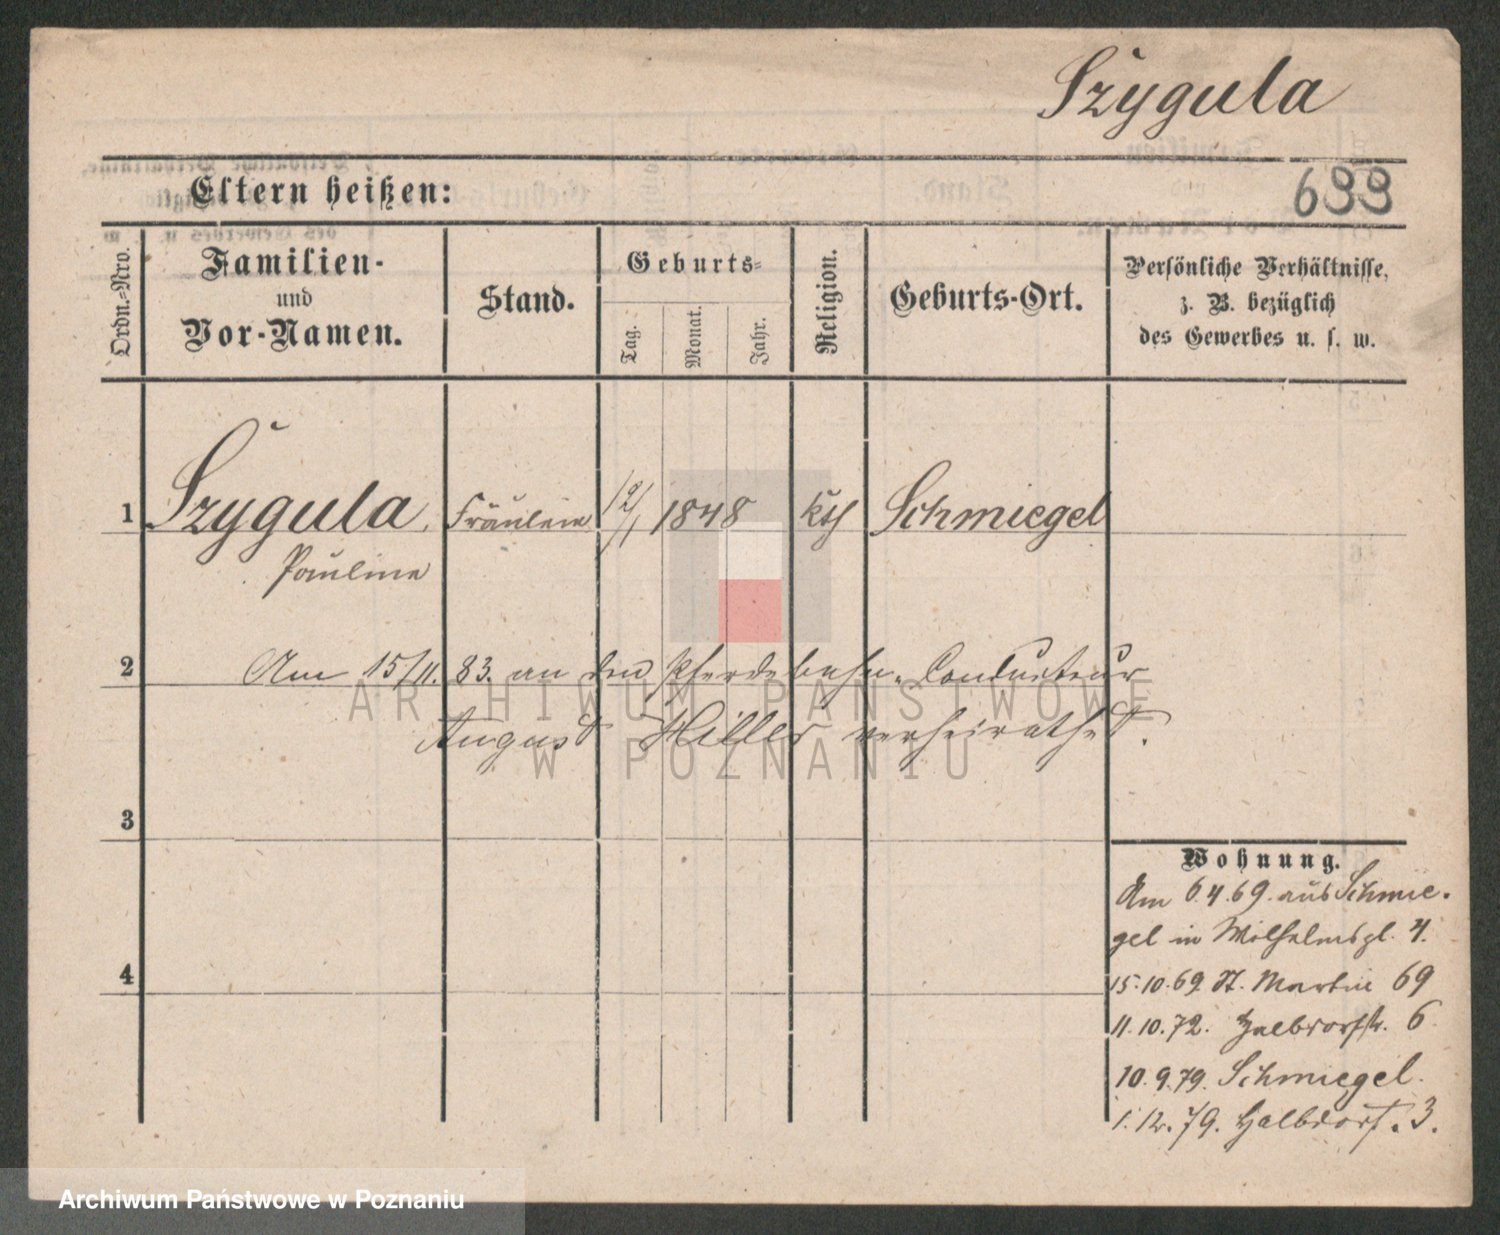 Szygula
Eltern heißen:
699
Ordn.-Nro.
Familien-
und
Vor-Namen.
Stand.
Geburts-
Tag.
Monat.
Jahr.
Religion.
Geburts-Ort.
Persönliche Verhältnisse,
z. B. bezüglich
des Gewerbes u. s. w.
1 Szygula Fräulein 12/1 1848 kth Schmiegel
Pauline
2 Am 15/11. 83. an den Pferdebahn-Conducteur
ARCHIWUM PAŃSTWOWE
August Hiller verheirathet.
W POZNANIU
3
Wohnung.
Am 6.4.69. aus Schmie-
gel in Wilhelmspl. 4.
4
15.10.69. St. Martin 69
11.10.72. Halbdorfstr. 6
10.9.79. Schmiegel.
1.12.79. Halbdorf. 3.
Archiwum Państwowe w Poznaniu